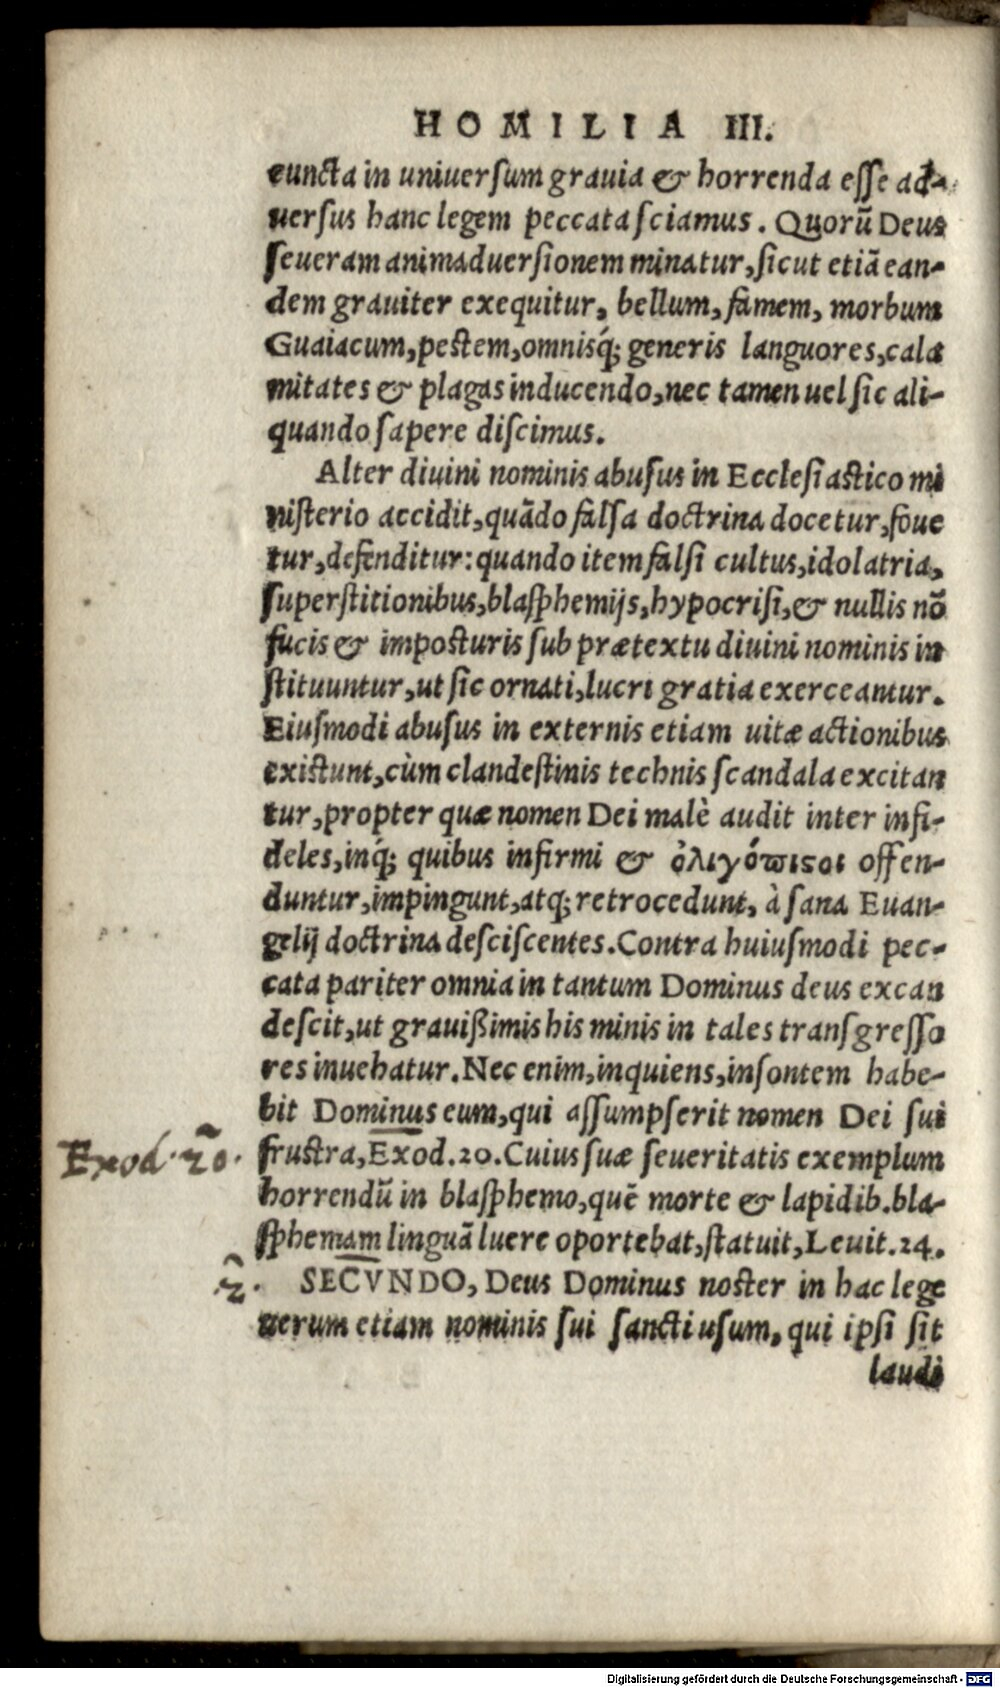 HOMILIA III.
cuncta in uniuersum grauia & horrenda esse ad-
uersus hanc legem peccata sciamus. Quorũ Deus
seueram animaduersionem minatur, sicut etiã ean-
dem grauiter exequitur, bellum, famem, morbum
Guaiacum, pestem, omnisq́; generis languores, cala
mitates & plagas inducendo, nec tamen uel sic ali-
quando sapere discimus.
Alter diuini nominis abusus in Ecclesiastico mi
nisterio accidit, quãdo falsa doctrina docetur, foue
tur, defenditur: quando item falsi cultus, idolatria,
superstitionibus, blasphemijs, hypocrisi, & nullis nõ
fucis & imposturis sub prætextu diuini nominis in
stituuntur, ut sic ornati, lucri gratia exerceantur.
Eiusmodi abusus in externis etiam uitæ actionibus
existunt, cùm clandestinis technis scandala excitan
tur, propter quæ nomen Dei malè audit inter infi-
deles, inq́; quibus infirmi & ὀλιγόπιςοι offen-
duntur, impingunt, atq; retrocedunt, à sana Euan-
gelij doctrina desciscentes. Contra huiusmodi pec-
cata pariter omnia in tantum Dominus deus excan
descit, ut grauißimis his minis in tales transgresso
res inuehatur. Nec enim, inquiens, insontem habe-
bit Dominus eum, qui assumpserit nomen Dei sui
Exod. 20. frustra, Exod. 20. Cuius suæ seueritatis exemplum
horrendũ in blasphemo, quẽ morte & lapidib. bla-
sphemam linguã luere oportebat, statuit, Leuit. 24.
.2. SECVNDO, Deus Dominus noster in hac lege
uerum etiam nominis sui sancti usum, qui ipsi sit
laudi
Digitalisierung gefördert durch die Deutsche Forschungsgemeinschaft - DFG